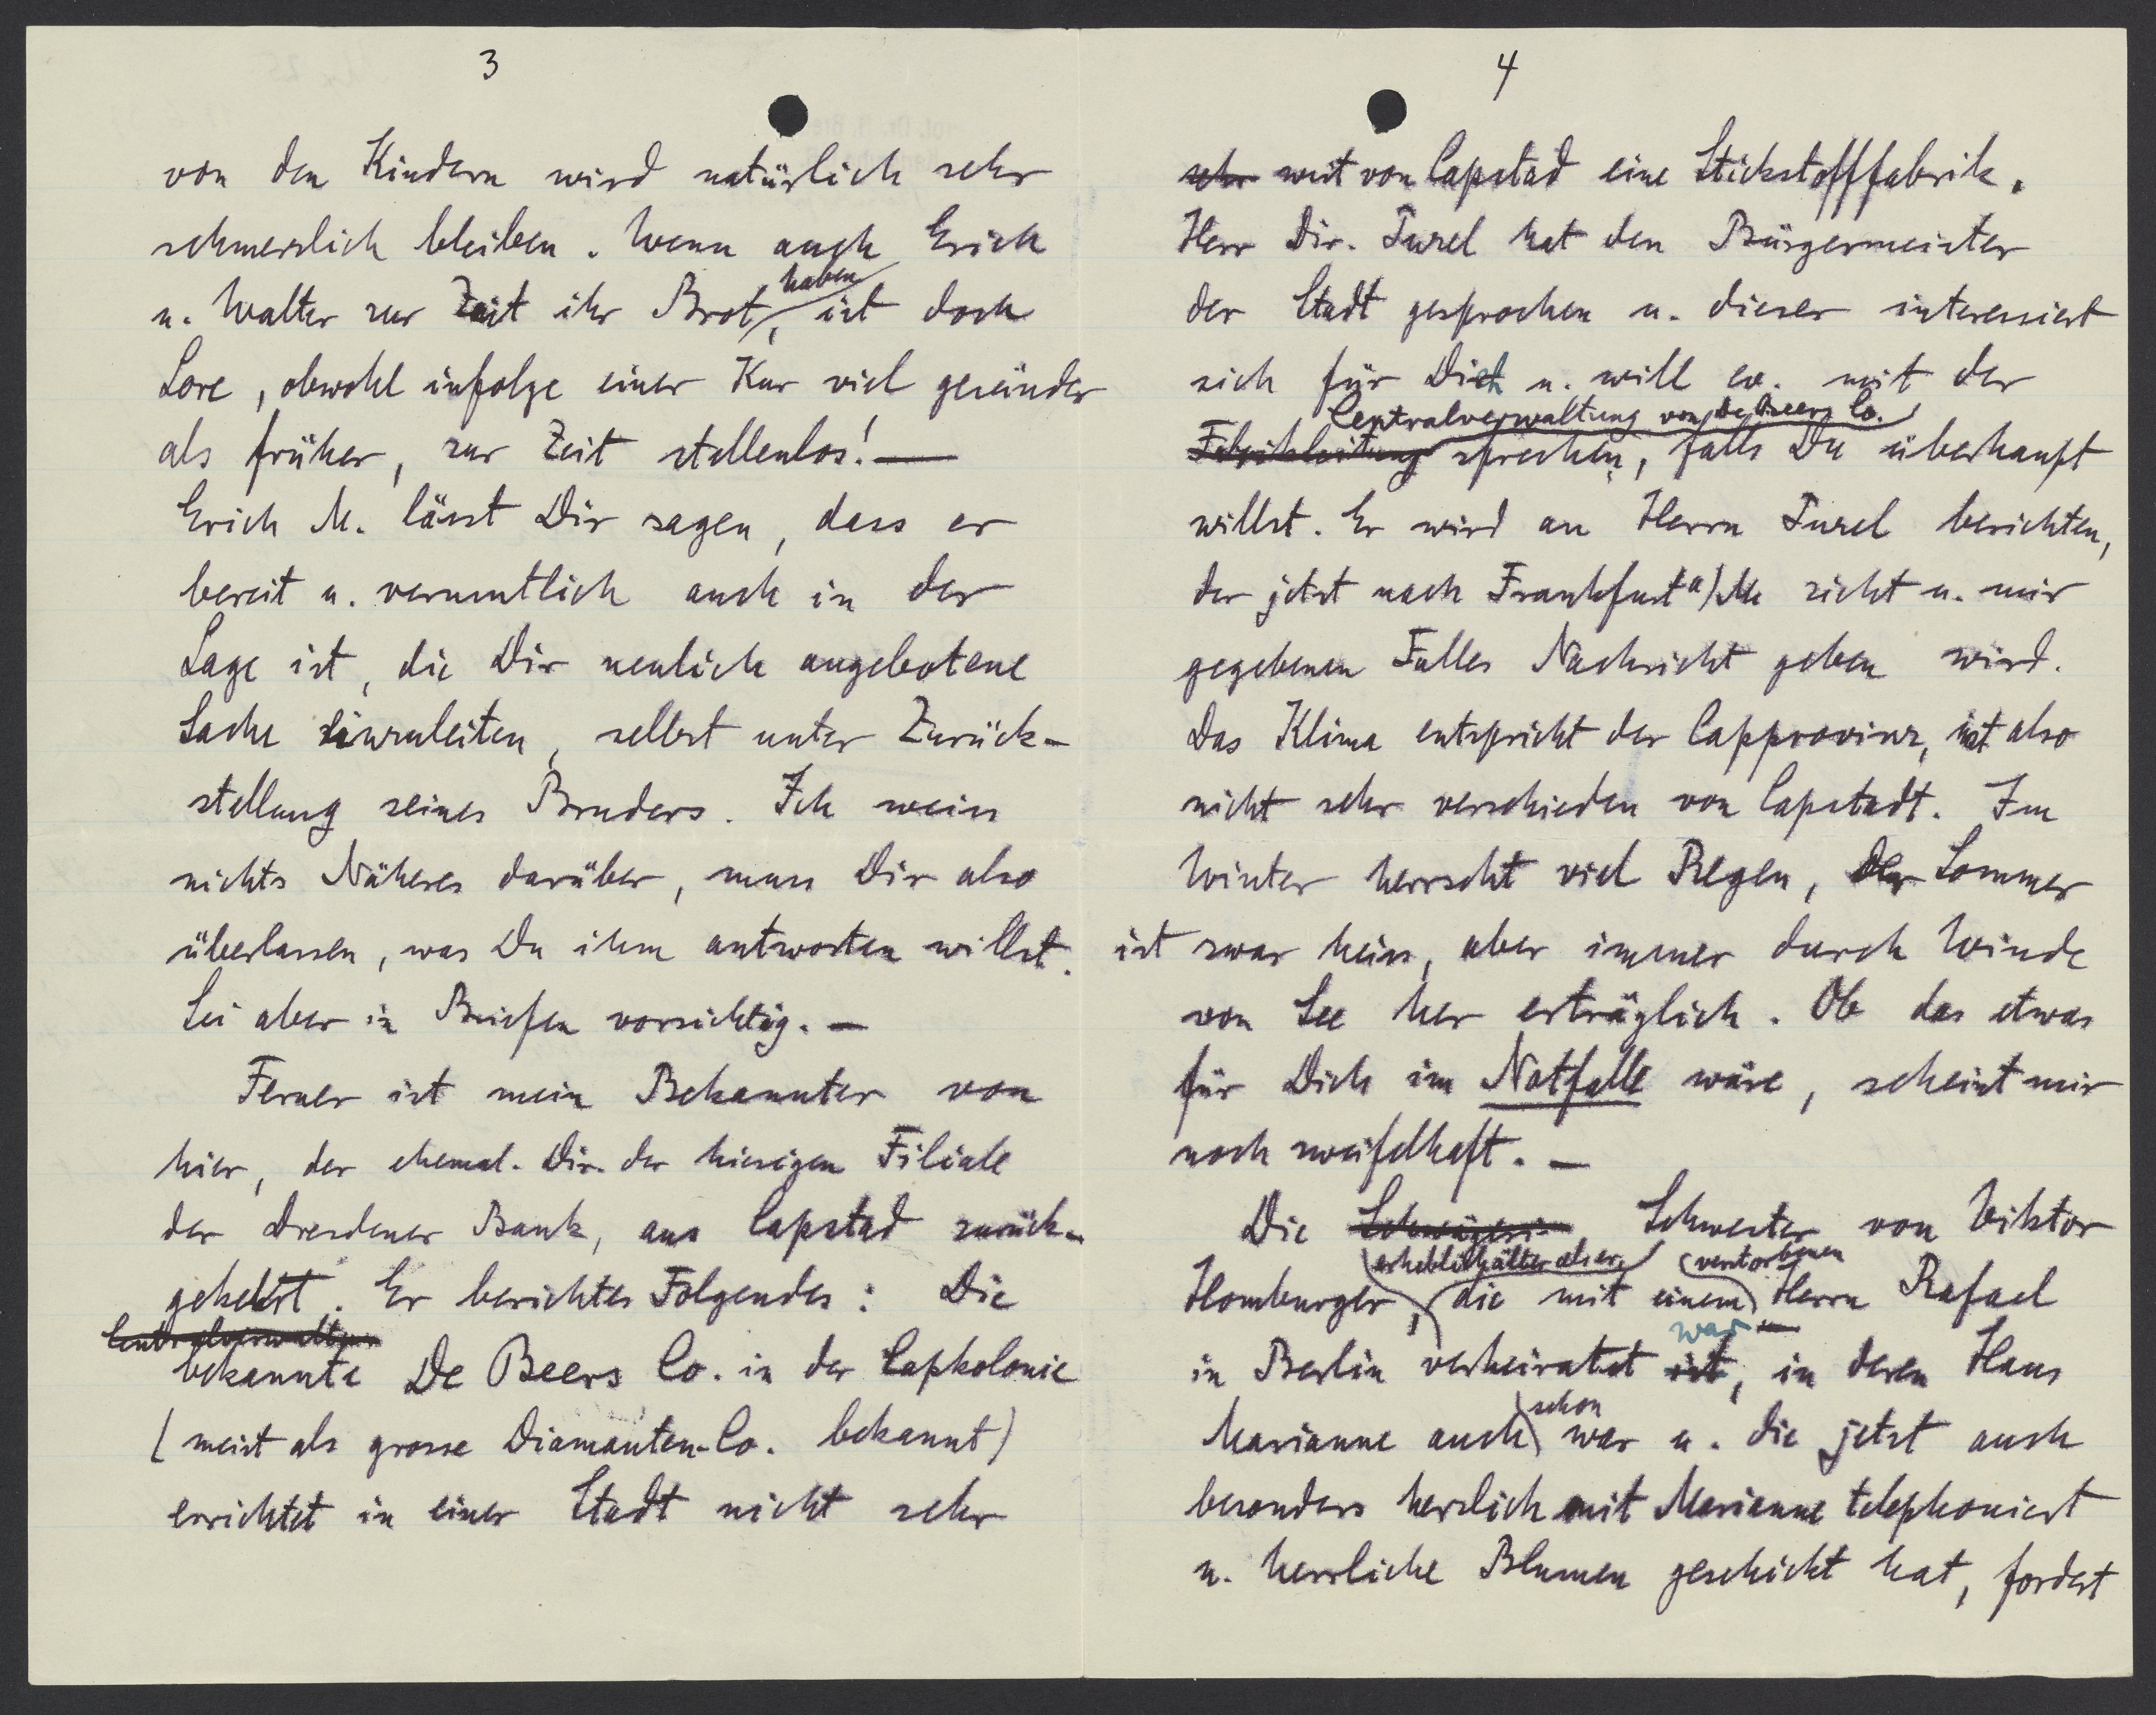 3
von den Kindern wird natürlich sehr
schmerzlich bleiben. Wenn auch Erich
u. Walter zur Zeit ihr Brot haben, ist doch
Lore, obwohl infolge einer Kur viel gesünder
als früher, zur Zeit stellenlos! —
Erich M. lässt Dir sagen, dass er
bereit u. vermutlich auch in der
Lage ist, die Dir neulich angebotene
Sache einzuleiten, selbst unter Zurück-
stellung seines Bruders. Ich weiss
nichts Näheres darüber, muss Dir also
überlassen, was Du ihm antworten willst.
Sei aber in Briefen vorsichtig. —
Ferner ist mein Bekannter von
hier, der ehemal. Dir. der hiesigen Filiale
der Dresdener Bank, aus Capstad zurück-
gekehrt. Er berichtet Folgendes: Die
Centralverwaltung
bekannte De Beers Co. in der Capkolonie
(meist als grosse Diamanten-Co. bekannt)
errichtet in einer Stadt nicht sehr
4
sehr weit von Capstad eine Stickstofffabrik.
Herr Dir. Turel hat den Bürgermeister
der Stadt gesprochen u. dieser interessiert
sich für Dich u. will ev. mit der
Centralverwaltung von De Beers Co.
Fabrikleitung sprechen, falls Du überhaupt
willst. Er wird an Herrn Turel berichten,
der jetzt nach Frankfurt a/M zieht u. mir
gegebenen Falles Nachricht geben wird.
Das Klima entspricht der Capprovinz, ist also
nicht sehr verschieden von Capstadt. Im
Winter herrscht viel Regen, der Sommer
ist zwar heiss, aber immer durch Winde
von See her erträglich. Ob das etwas
für Dich im Notfalle wäre, scheint mir
noch zweifelhaft. —
Die Schwägerin Schwester von Viktor
erheblich älter als er, verstorbenen
Homburger, die mit einem Herrn Rafael
war
in Berlin verheiratet ist, in deren Haus
Marianne auch schon war u. die jetzt auch
besonders herzlich mit Marianne telephoniert
u. herrliche Blumen geschickt hat, fordert